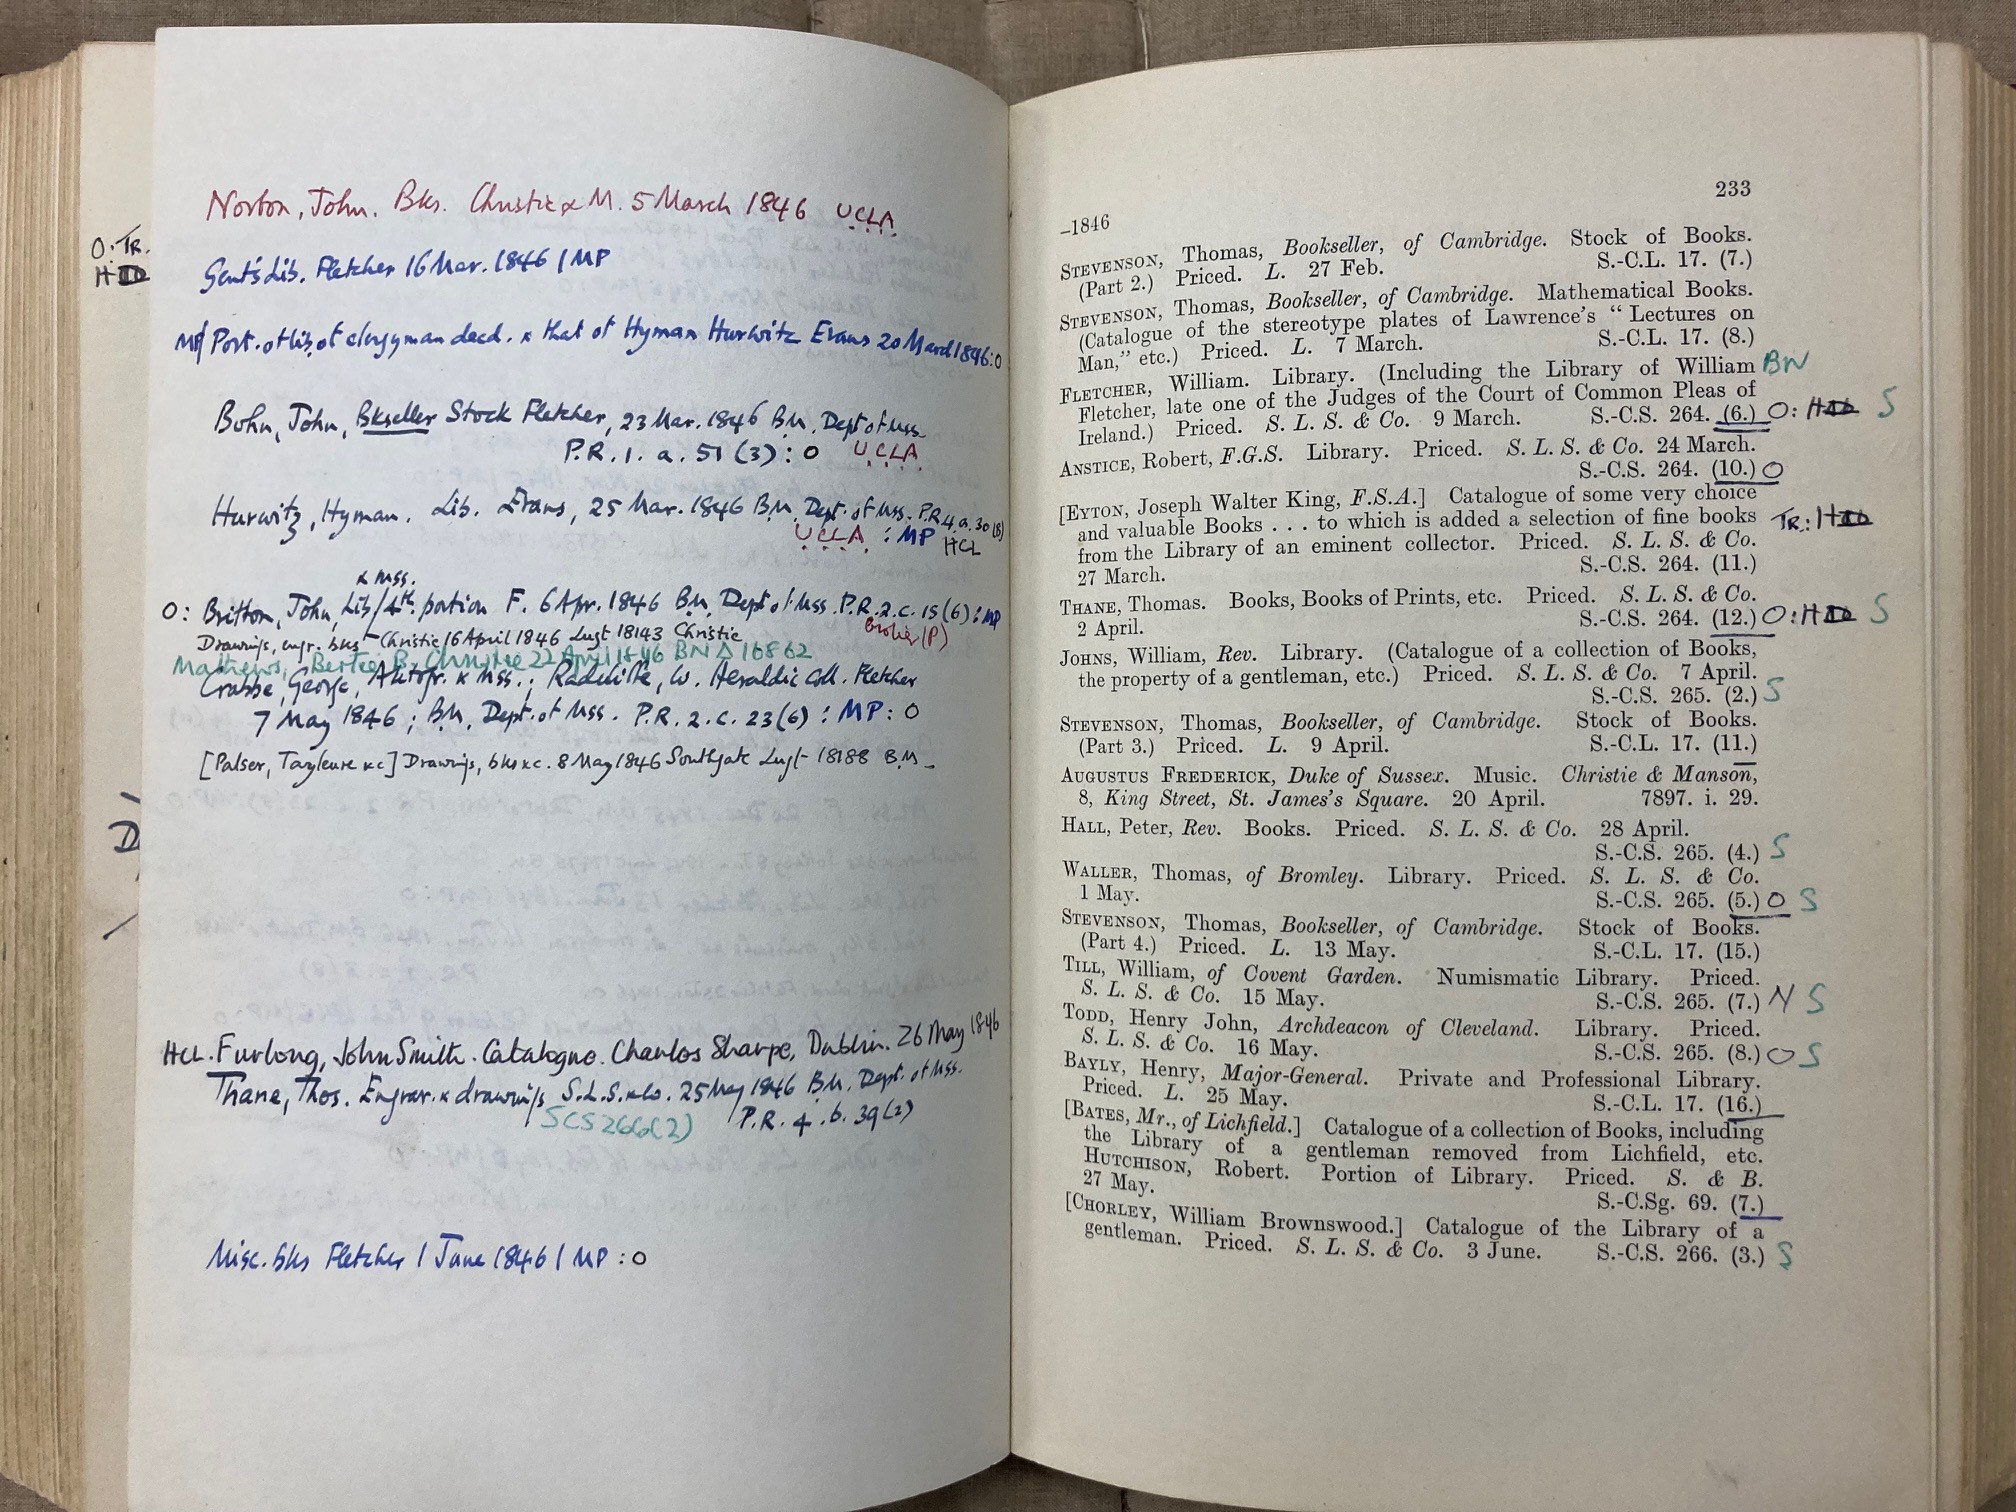 O: TR.
H
D
Norton, John. Bks. Christie & M. 5 March 1846 UCLA
Gent's Lib. Fletcher 16 Mar. 1846 / MP
MP/ Port. of lib. of clergyman decd. & that of Hyman Hurwitz Evans 20 March 1846: O
Bohn, John, Bkseller Stock Fletcher, 23 Mar. 1846 B.M. Dept of Mss.
P.R. 1. a. 51 (3) : O UCLA
Hurwitz, Hyman. Lib. Evans, 25 Mar. 1846 B.M. Dept. of Mss. P.R. 4. a. 30 (8)
UCLA : MP HCL
& Mss.
O: Britton, John, Lib / 4th. portion F. 6 Apr. 1846 B.M. Dept of Mss. P.R. 2. c. 15 (6) : MP
Grolier (P)
Drawings, engr. bks Christie 16 April 1846 Lugt 18143 Christie
Mathews, Bertie B. Christie 22 April 1846 BN Δ 16862
Crabbe, George, Autogr. & Mss. ; Radcliffe, W. Heraldic Coll. Fletcher
7 May 1846 ; B.M. Dept. of Mss. P.R. 2. c. 23 (6) : MP : O
[Palser, Tayleure &c] Drawings, bks &c. 8 May 1846 Southgate Lugt 18188 B.M.
HCL. Furlong, John Smith. Catalogue. Charles Sharpe, Dublin. 26 May 1846
Thane, Thos. Engrav. & drawings S.L.S. & Co. 25 May 1846 B.M. Dept. of Mss.
SCS 266 (2) P.R. 4. b. 39 (2)
Misc. bks Fletcher 1 June 1846 / MP : O
233
–1846
STEVENSON, Thomas, Bookseller, of Cambridge. Stock of Books.
(Part 2.) Priced. L. 27 Feb. S.-C.L. 17. (7.)
STEVENSON, Thomas, Bookseller, of Cambridge. Mathematical Books.
(Catalogue of the stereotype plates of Lawrence's “ Lectures on
Man,” etc.) Priced. L. 7 March. S.-C.L. 17. (8.)
FLETCHER, William. Library. (Including the Library of William BN
Fletcher, late one of the Judges of the Court of Common Pleas of
Ireland.) Priced. S. L. S. & Co. 9 March. S.-C.S. 264. (6.) O: H S
ANSTICE, Robert, F.G.S. Library. Priced. S. L. S. & Co. 24 March.
S.-C.S. 264. (10.) O
[EYTON, Joseph Walter King, F.S.A.] Catalogue of some very choice
and valuable Books . . . to which is added a selection of fine books TR.: H
from the Library of an eminent collector. Priced. S. L. S. & Co.
27 March. S.-C.S. 264. (11.)
THANE, Thomas. Books, Books of Prints, etc. Priced. S. L. S. & Co.
2 April. S.-C.S. 264. (12.) O: H S
JOHNS, William, Rev. Library. (Catalogue of a collection of Books,
the property of a gentleman, etc.) Priced. S. L. S. & Co. 7 April.
S.-C.S. 265. (2.) S
STEVENSON, Thomas, Bookseller, of Cambridge. Stock of Books.
(Part 3.) Priced. L. 9 April. S.-C.L. 17. (11.)
AUGUSTUS FREDERICK, Duke of Sussex. Music. Christie & Manson,
8, King Street, St. James's Square. 20 April. 7897. i. 29.
HALL, Peter, Rev. Books. Priced. S. L. S. & Co. 28 April.
S.-C.S. 265. (4.) S
WALLER, Thomas, of Bromley. Library. Priced. S. L. S. & Co.
1 May. S.-C.S. 265. (5.) O S
STEVENSON, Thomas, Bookseller, of Cambridge. Stock of Books.
(Part 4.) Priced. L. 13 May. S.-C.L. 17. (15.)
TILL, William, of Covent Garden. Numismatic Library. Priced.
S. L. S. & Co. 15 May. S.-C.S. 265. (7.) N S
TODD, Henry John, Archdeacon of Cleveland. Library. Priced.
S. L. S. & Co. 16 May. S.-C.S. 265. (8.) O S
BAYLY, Henry, Major-General. Private and Professional Library.
Priced. L. 25 May. S.-C.L. 17. (16.)
[BATES, Mr., of Lichfield.] Catalogue of a collection of Books, including
the Library of a gentleman removed from Lichfield, etc.
HUTCHISON, Robert. Portion of Library. Priced. S. & B.
27 May. S.-C.Sg. 69. (7.)
[CHORLEY, William Brownswood.] Catalogue of the Library of a
gentleman. Priced. S. L. S. & Co. 3 June. S.-C.S. 266. (3.) S